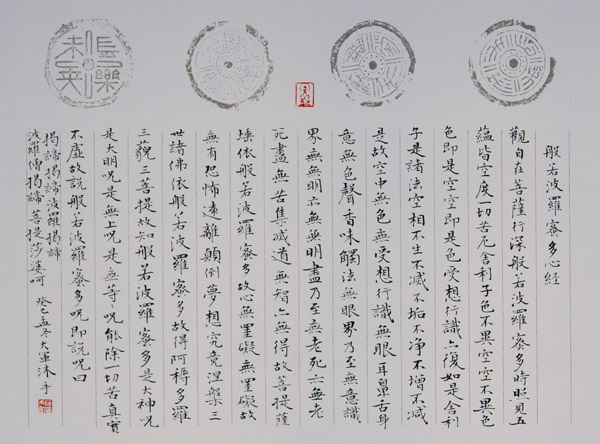 般若波羅蜜多心經
觀自在菩薩行深般若波羅蜜多時照見五
蘊皆空度一切苦厄舍利子色不異空空不異色
色即是空空即是色受想行識亦復如是舍利
子是諸法空相不生不滅不垢不净不增不減
是故空中無色無受想行識無眼耳鼻舌身
意無色聲香味觸法無眼界乃至無意識
界無無明亦無無明盡乃至無老死亦無老
死盡無苦集滅道無智亦無得故菩提薩
埵依般若波羅蜜多故心無罣礙無罣礙故
無有恐怖遠離顛倒夢想究竟涅槃三
世諸佛依般若波羅蜜多故得阿耨多羅
三藐三菩提故知般若波羅蜜多是大神呪
是大明呪是無上呪是無等呪能除一切苦真實
不虛故說般若波羅蜜多呪即說呪曰
揭諦揭諦波羅揭諦
波羅僧揭諦菩提莎婆呵
癸巳孟冬大軍沐手
長樂未央